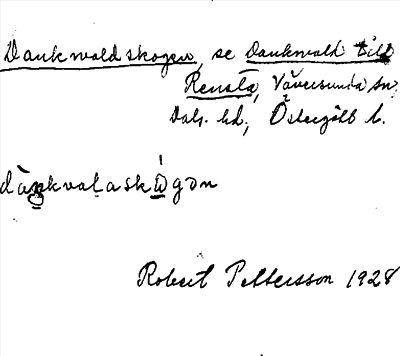 Dankwaldskogen, se Dankwald till
Renstad, Väversunda sn.
Dals hd, Östergötl l.
dànkvalaskó̱gən
Robert Pettersson 1928